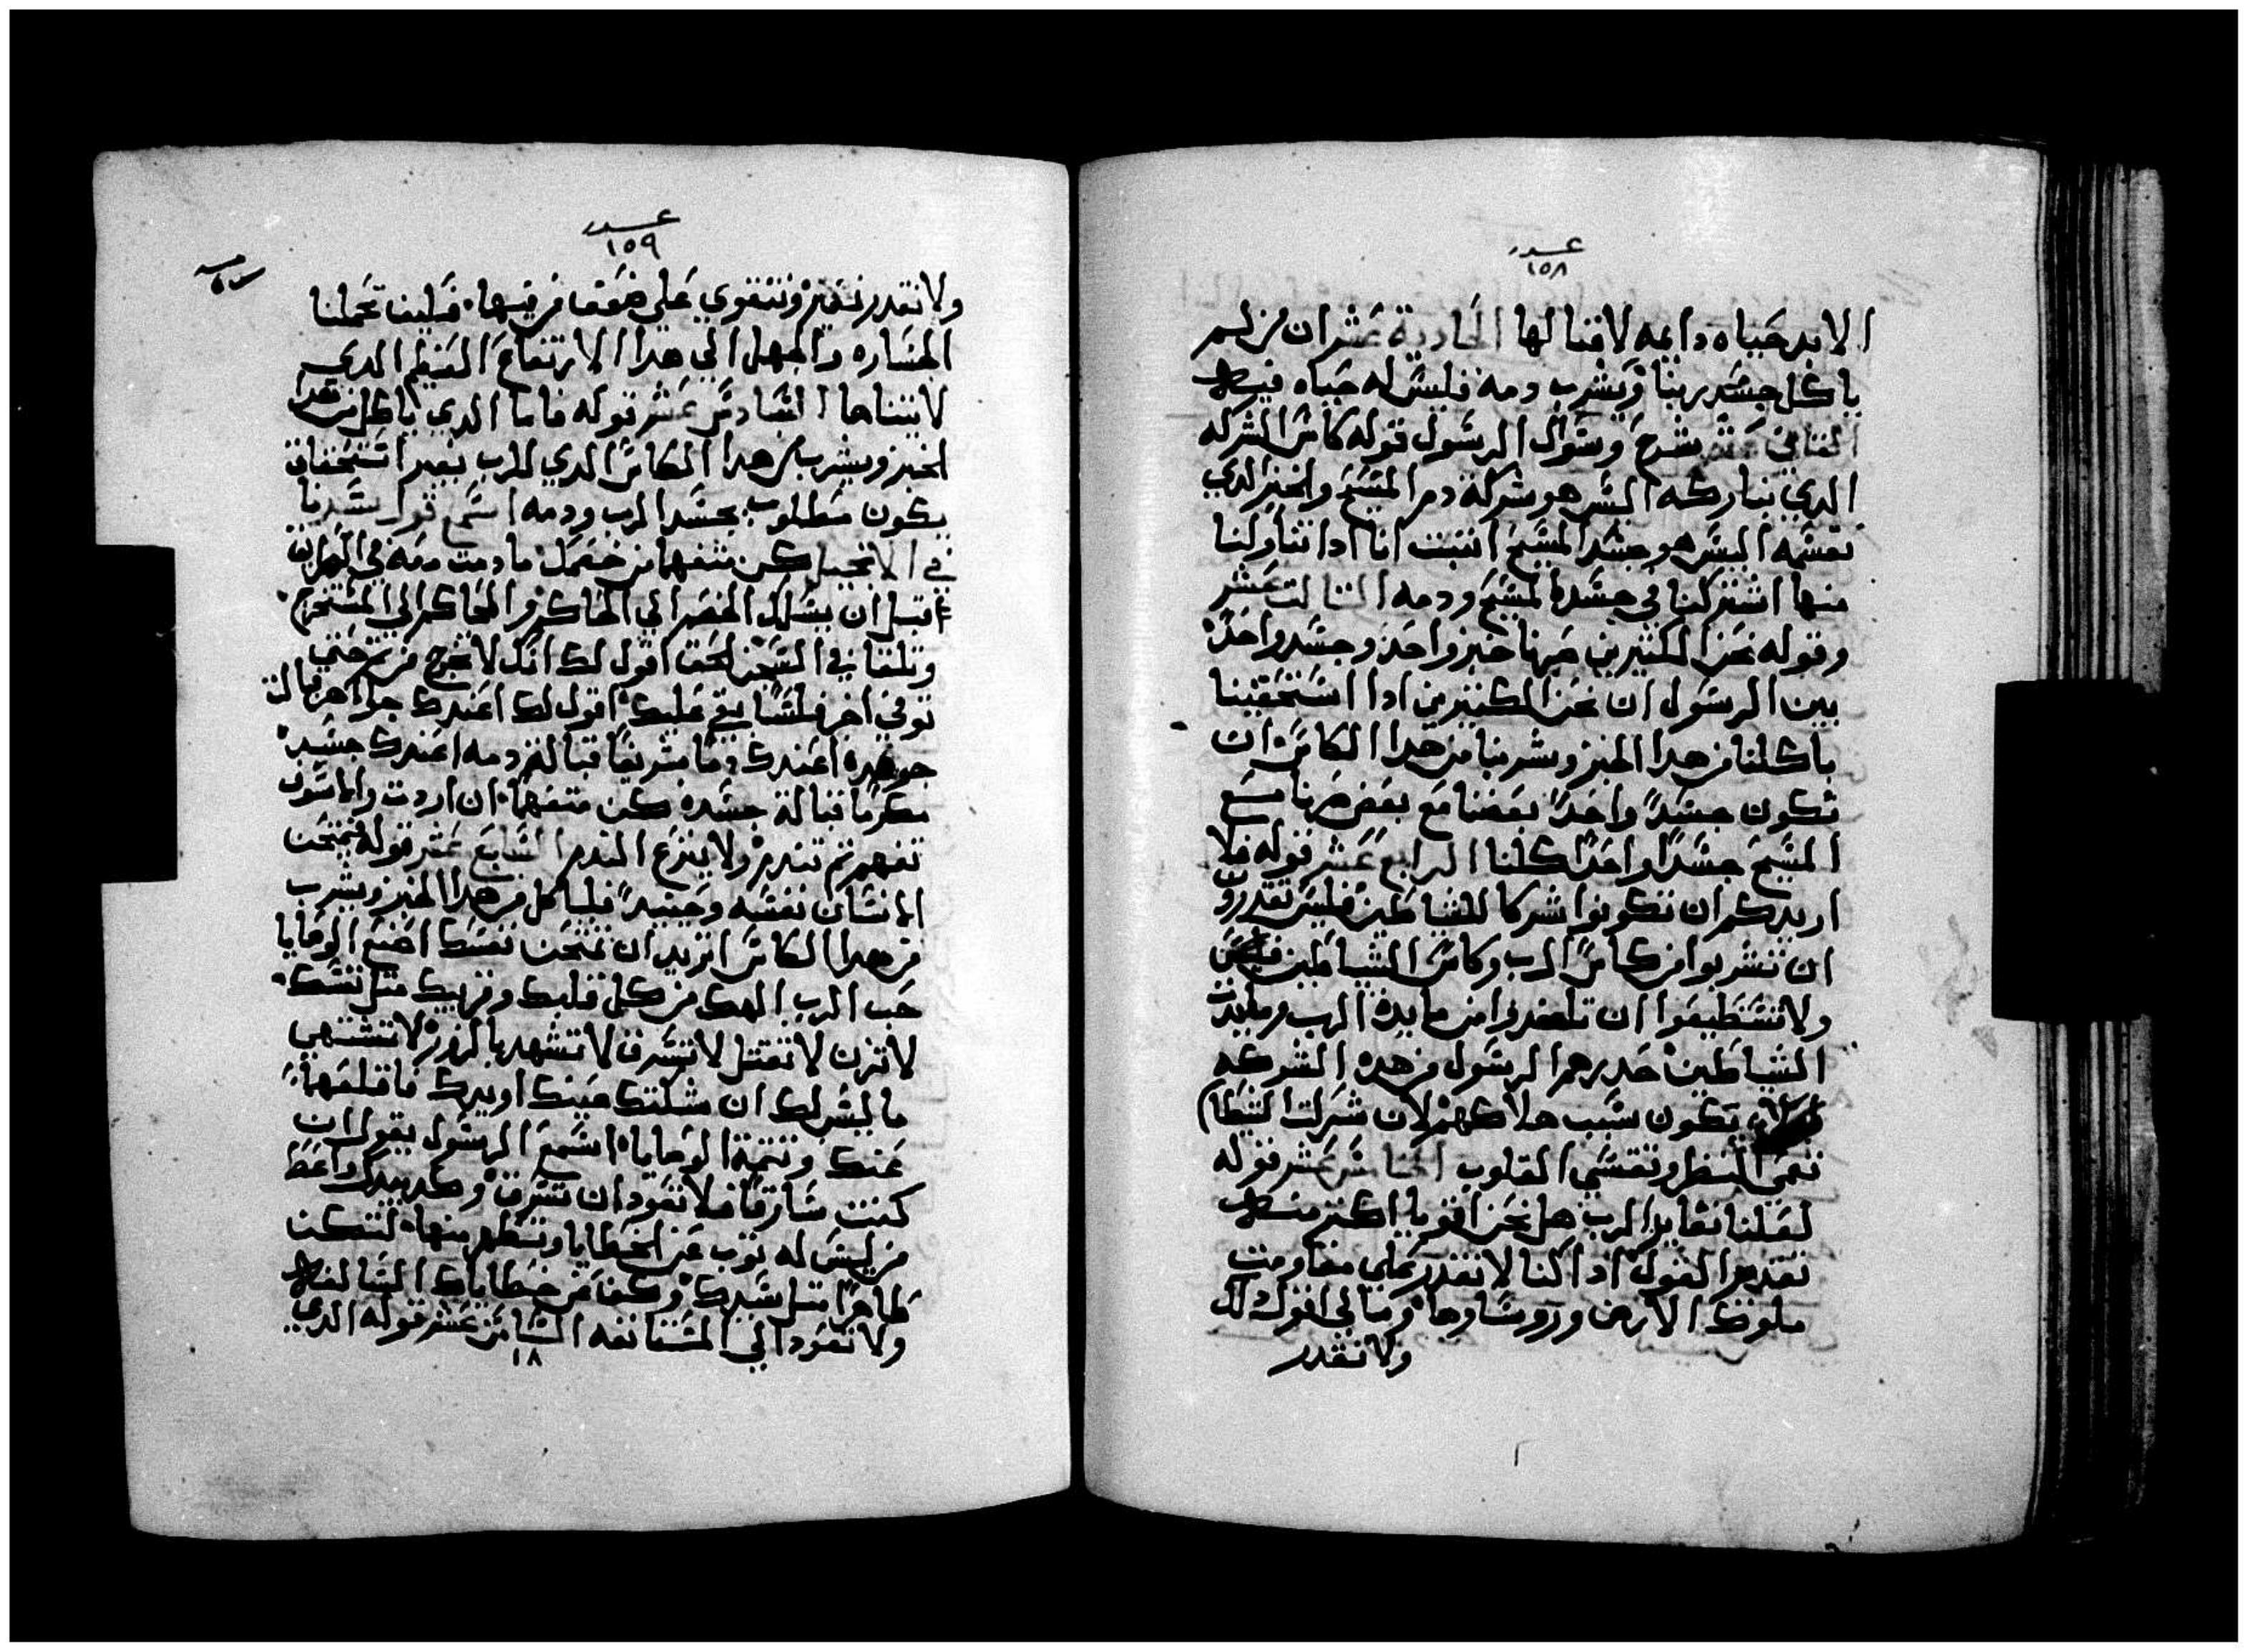 عدد
١٥٨
الابد حياه دايمه لا فنا لها الحادية عشر ان من لم
ياكل جسد ربنا ويشرب دمه فليس له حياه فيه
الثاني عشر شرح وسوال الرسول قوله كاس الشركه
الدي نباركه اليس هو شركة دم المسيح والخبز الدي
نقسمه اليس هو جسد المسيح اتبت انا ادا تناولنا
منها اشتركنا في جسد المسيح ودمه الثالت عشر
وقوله نحن الكثيرين خبز واحد وجسد واحد
بين الرسول ان نحن الكتيرين ادا استحقينا
باكلنا من هدا الخبز وشربنا من هدا الكاس ان
نكون جسدا واحدا بعضنا مع بعض مع
المسيح جسدا واحدا كلنا الرابع عشر قوله فلا
اريدكم ان تكونوا شركا للشياطين فليس تقدرو
ان تشربوا من كاس الرب وكاس الشياطين
ولا تستطيعوا ان تاخدوا من مايدة الرب ومايدت
الشياطين حدرهم الرسول من هده الشركه
تكون سبب هلاكهم لان شركت الشيطا
تعمي النظر وتقسي القلوب الخامس عشر قوله
لعلنا نغاير الرب هل نحن اقويا اكتر منه
نقدم القول ادا كنا لا نقدر على مقاومت
ملوك الارض وروساوها وما لي اقول دلك
ولا نقدر
عدد
١٥٩
ولا نقدر نتقوي على ضعفا فيها فكيف تحملنا
الجساره والجهل الي هدا الارتفاع العظيم الدي
لا يتناها السادس عشر قوله فاما الدي ياكل من هدا
الخبز ويشرب من هدا الكاس الدي للرب بغير استحقاق
يكون مطلوب بجسد الرب ودمه اسمع قول سيدنا
في الانجيل كن متفها من خصمك ما دمت معه في الطريق
قبل ان يسلمك الخصم الي الحاكم والحاكم الي المستخرج
وتلقا في السجن الحق اقول لك انك لا تخرج من تم حتي
توفي اخر فلسا بقي عليك اقول لك اعندك جواهر قبالت
جوهره اعندك دما شريفا قبالة دمه اعندك جسد
مكرما قبالة جسده كن متفهما ان اردت والا سوف
تفهم تم تندم ولا ينفع الندم السابع عشر قوله فيمتحن
الانسان نفسه وحينيدا فلياكل من هدا الخبز ويشرب
من هدا الكاس اتريد ان تمتحن نفسك اصنع الوصايا
حب الرب الهك من كل قلبك وقريبك متل نفسك
لا تزن لا تقتل لا تسرق لا تشهد بالزور لا تشتهي
ما ليس لك ان شككتك عينك او يدك فاقلعها
عنك وتتمة الوصايا اسمع الرسول يقول ان
كنت سارقا فلا تعود ان تسرق وكد بيدك واعط
من ليس له توب عن الخطايا وتطهر منها لتكن
طاهرا متل سيدك وكفا عن خطاياك السالفه
ولا تعود الي المستانفه التامن عشر قوله الدي
١٨